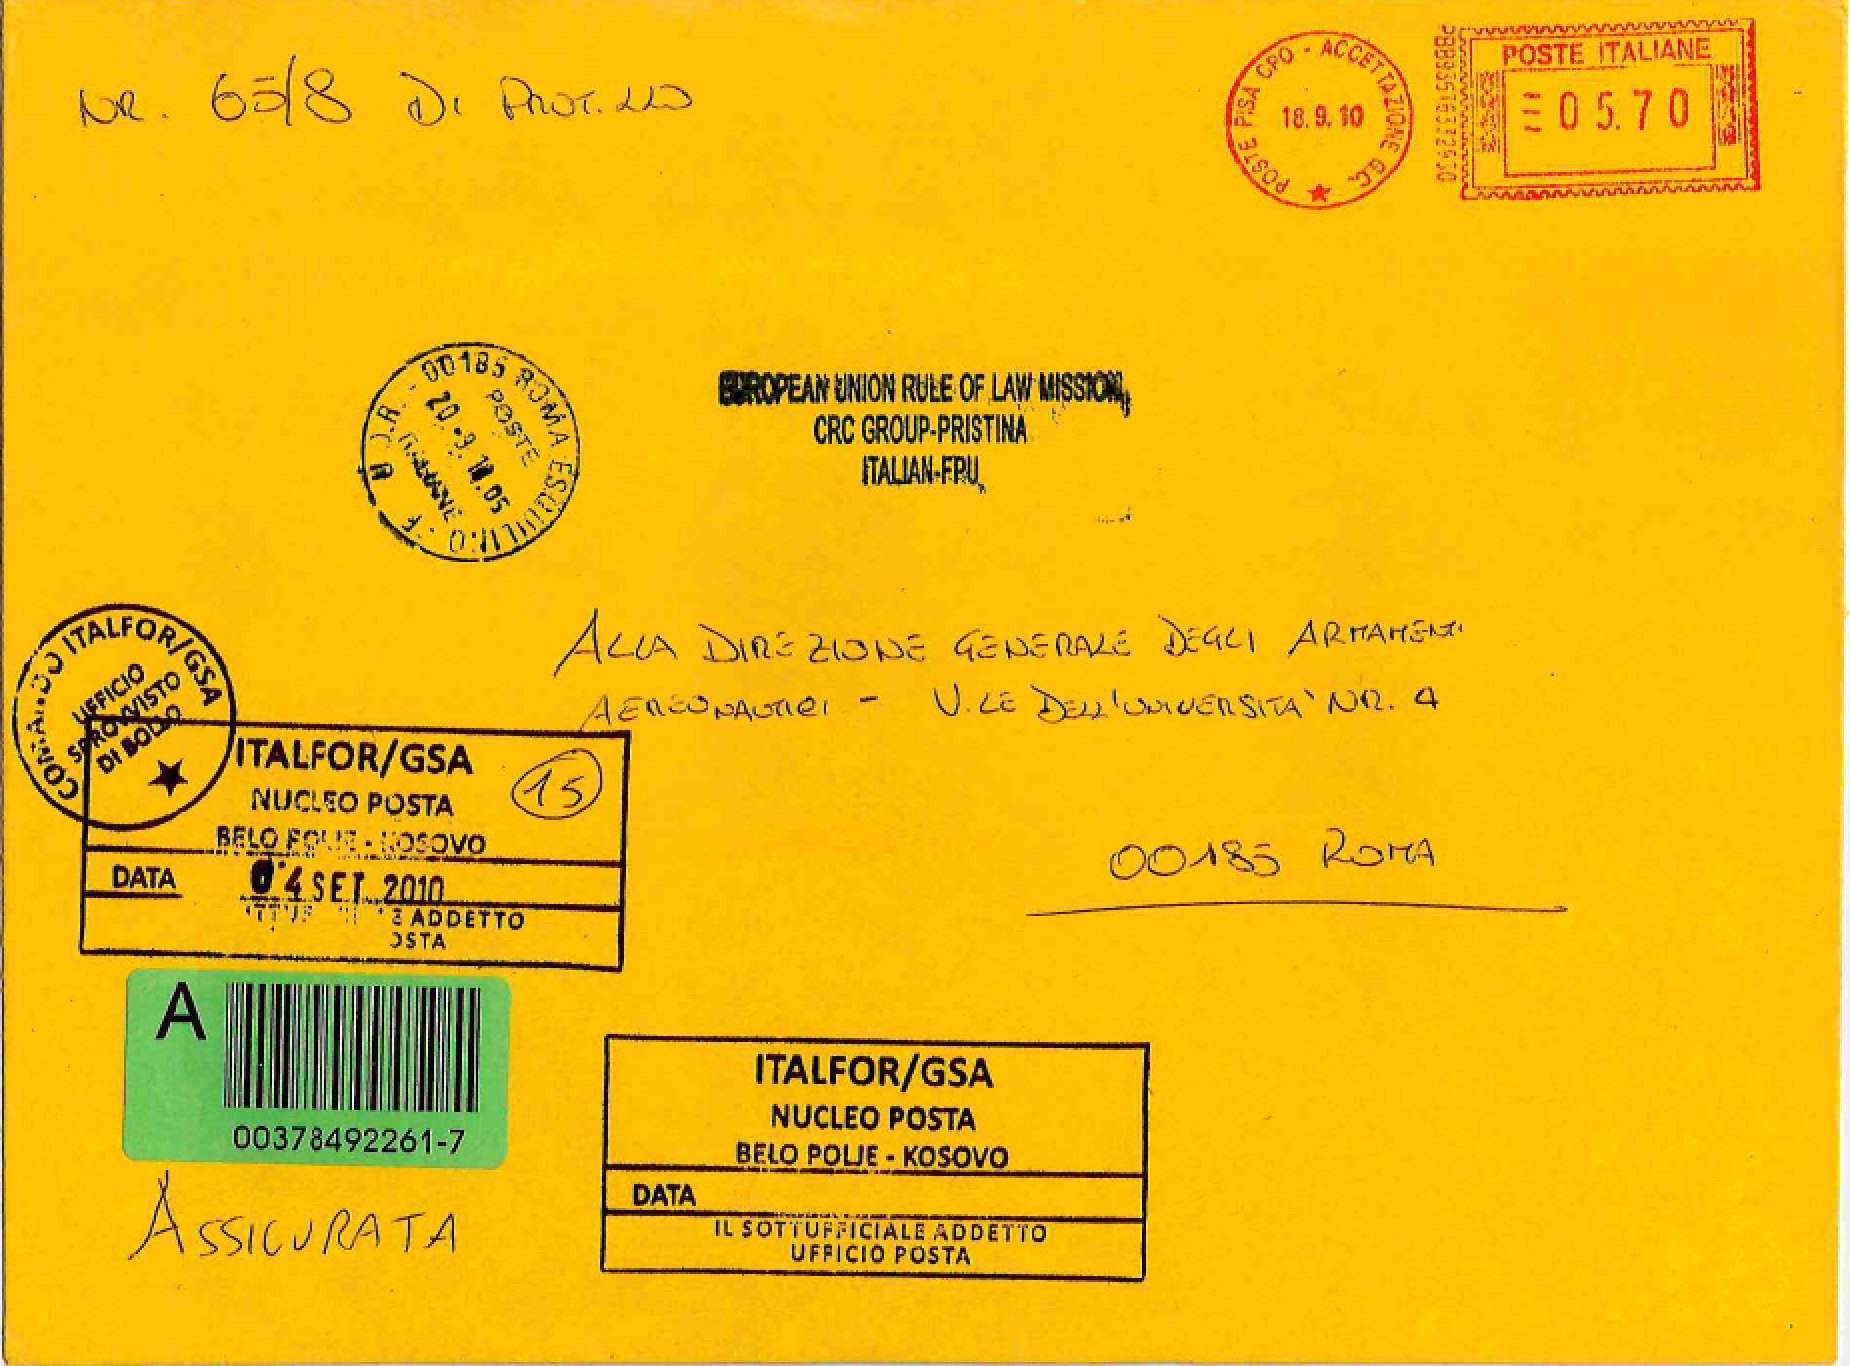 NR. 65/8 DI PROT.LLO
POSTE PISA CPO - ACCETTAZIONE G.C.
18.9.10
POSTE ITALIANE
05.70
00185 ROMA ESQUILINO
POSTE
ITALIANE
20.-9.10.05
EUROPEAN UNION RULE OF LAW MISSION,
CRC GROUP-PRISTINA
ITALIAN-FPU
ALLA DIREZIONE GENERALE DEGLI ARMAMENTI
AEREONAUTICI - V.LE DELL'UNIVERSITA' NR. 4
00185 ROMA
COMANDO ITALFOR/GSA
UFFICIO
SPROVVISTO
DI BOLLO
ITALFOR/GSA
15
NUCLEO POSTA
BELO POLJE - KOSOVO
DATA 04 SET. 2010
ADDETTO
A
00378492261-7
ASSICURATA
ITALFOR/GSA
NUCLEO POSTA
BELO POLJE - KOSOVO
DATA
IL SOTTUFFICIALE ADDETTO
UFFICIO POSTA